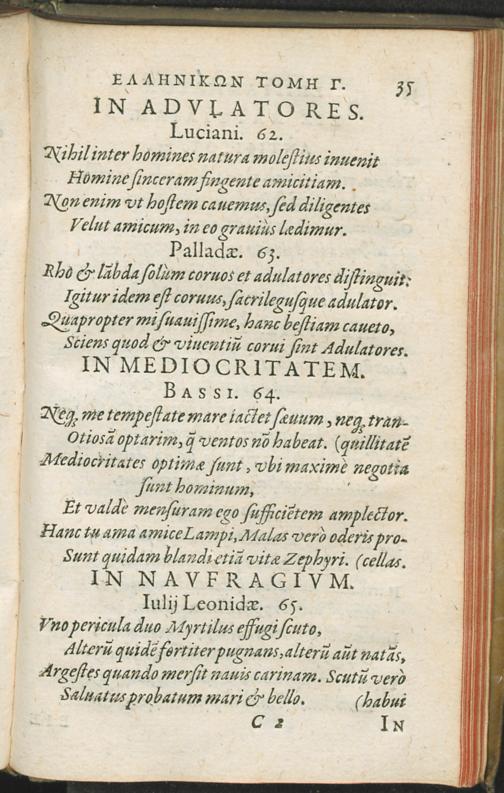 ΕΛΛΗΝΙΚΩΝ ΤΟΜΗ Γ. 35
IN ADVLATORES.
Luciani. 62.
Nihil inter homines natura molestius inuenit
Homine sinceram fingente amicitiam.
Non enim vt hostem cauemus, sed diligentes
Velut amicum, in eo grauiùs lædimur.
Palladæ. 63.
Rho & lābda solùm coruos et adulatores distinguit:
Igitur idem est coruus, sacrilegusque adulator.
Quapropter mi suauissime, hanc bestiam caueto,
Sciens quod & viuentiū corui sint Adulatores.
IN MEDIOCRITATEM.
BASSI. 64.
Neq; me tempestate mare iactet sæuum, neq; tran-
Otiosā optarim, q̄ ventos nō habeat. (quillitatē
Mediocritates optimæ sunt, vbi maximè negotia
sunt hominum,
Et valdè mensuram ego sufficiētem amplector.
Hanc tu ama amice Lampi, Malas verò oderis pro-
Sunt quidam blandi etiā vitæ Zephyri. (cellas.
IN NAVFRAGIVM.
Iulij Leonidæ. 65.
Vno pericula duo Myrtilus effugi scuto,
Alterū quidē fortiter pugnans, alterū aūt natās,
Argestes quando mersit nauis carinam. Scutū verò
Saluatus probatum mari & bello. (habui
C 2 IN